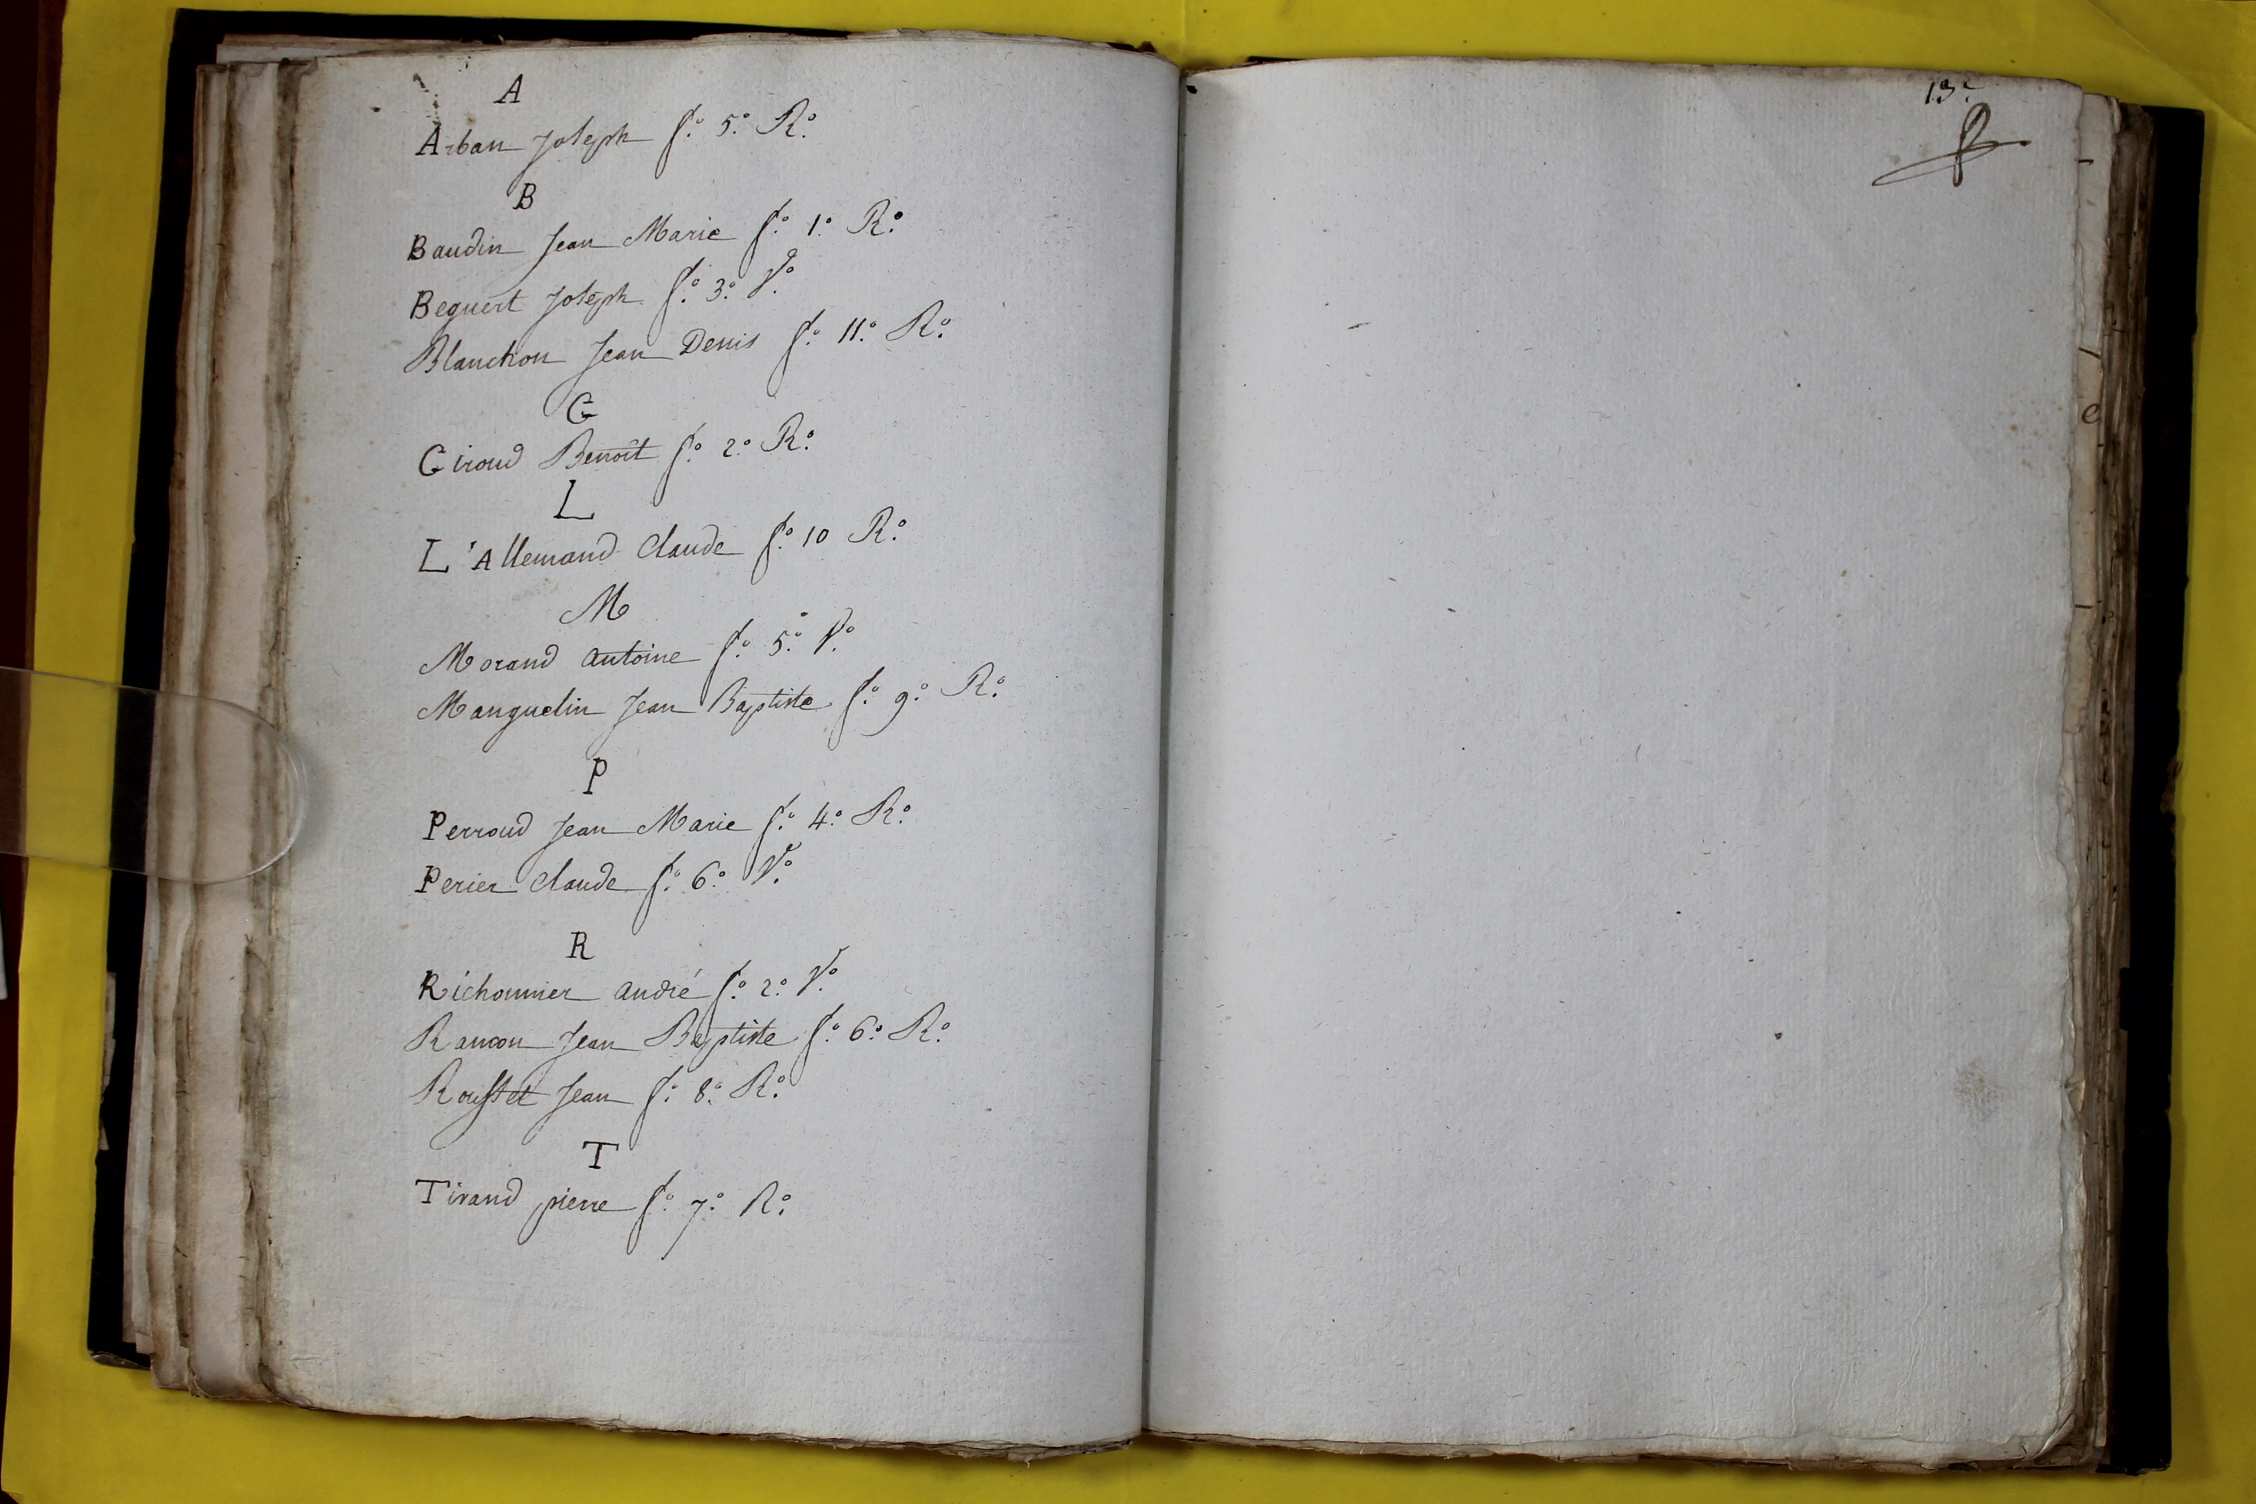 A
Arban Joseph f.º 5.º R.º
B
Baudin Jean Marie f.º 1.º R.º
Beguert Joseph f.º 3.º V.º
Blanchon Jean Denis f.º 11.º R.º
G
Giroud Benoît f.º 2.º R.º
L
L'Allemand Claude f.º 10 R.º
M
Morand antoine f.º 5.º V.º
Manguelin Jean Baptiste f.º 9.º R.º
P
Perroud Jean Marie f.º 4.º R.º
Perier Claude f.º 6.º V.º
R
Richonnier andré f.º 2.º V.º
Rancon Jean Baptiste f.º 6.º R.º
Roustet Jean f.º 8.º R.º
T
Tirand pierre f.º 7.º R.º
13.e